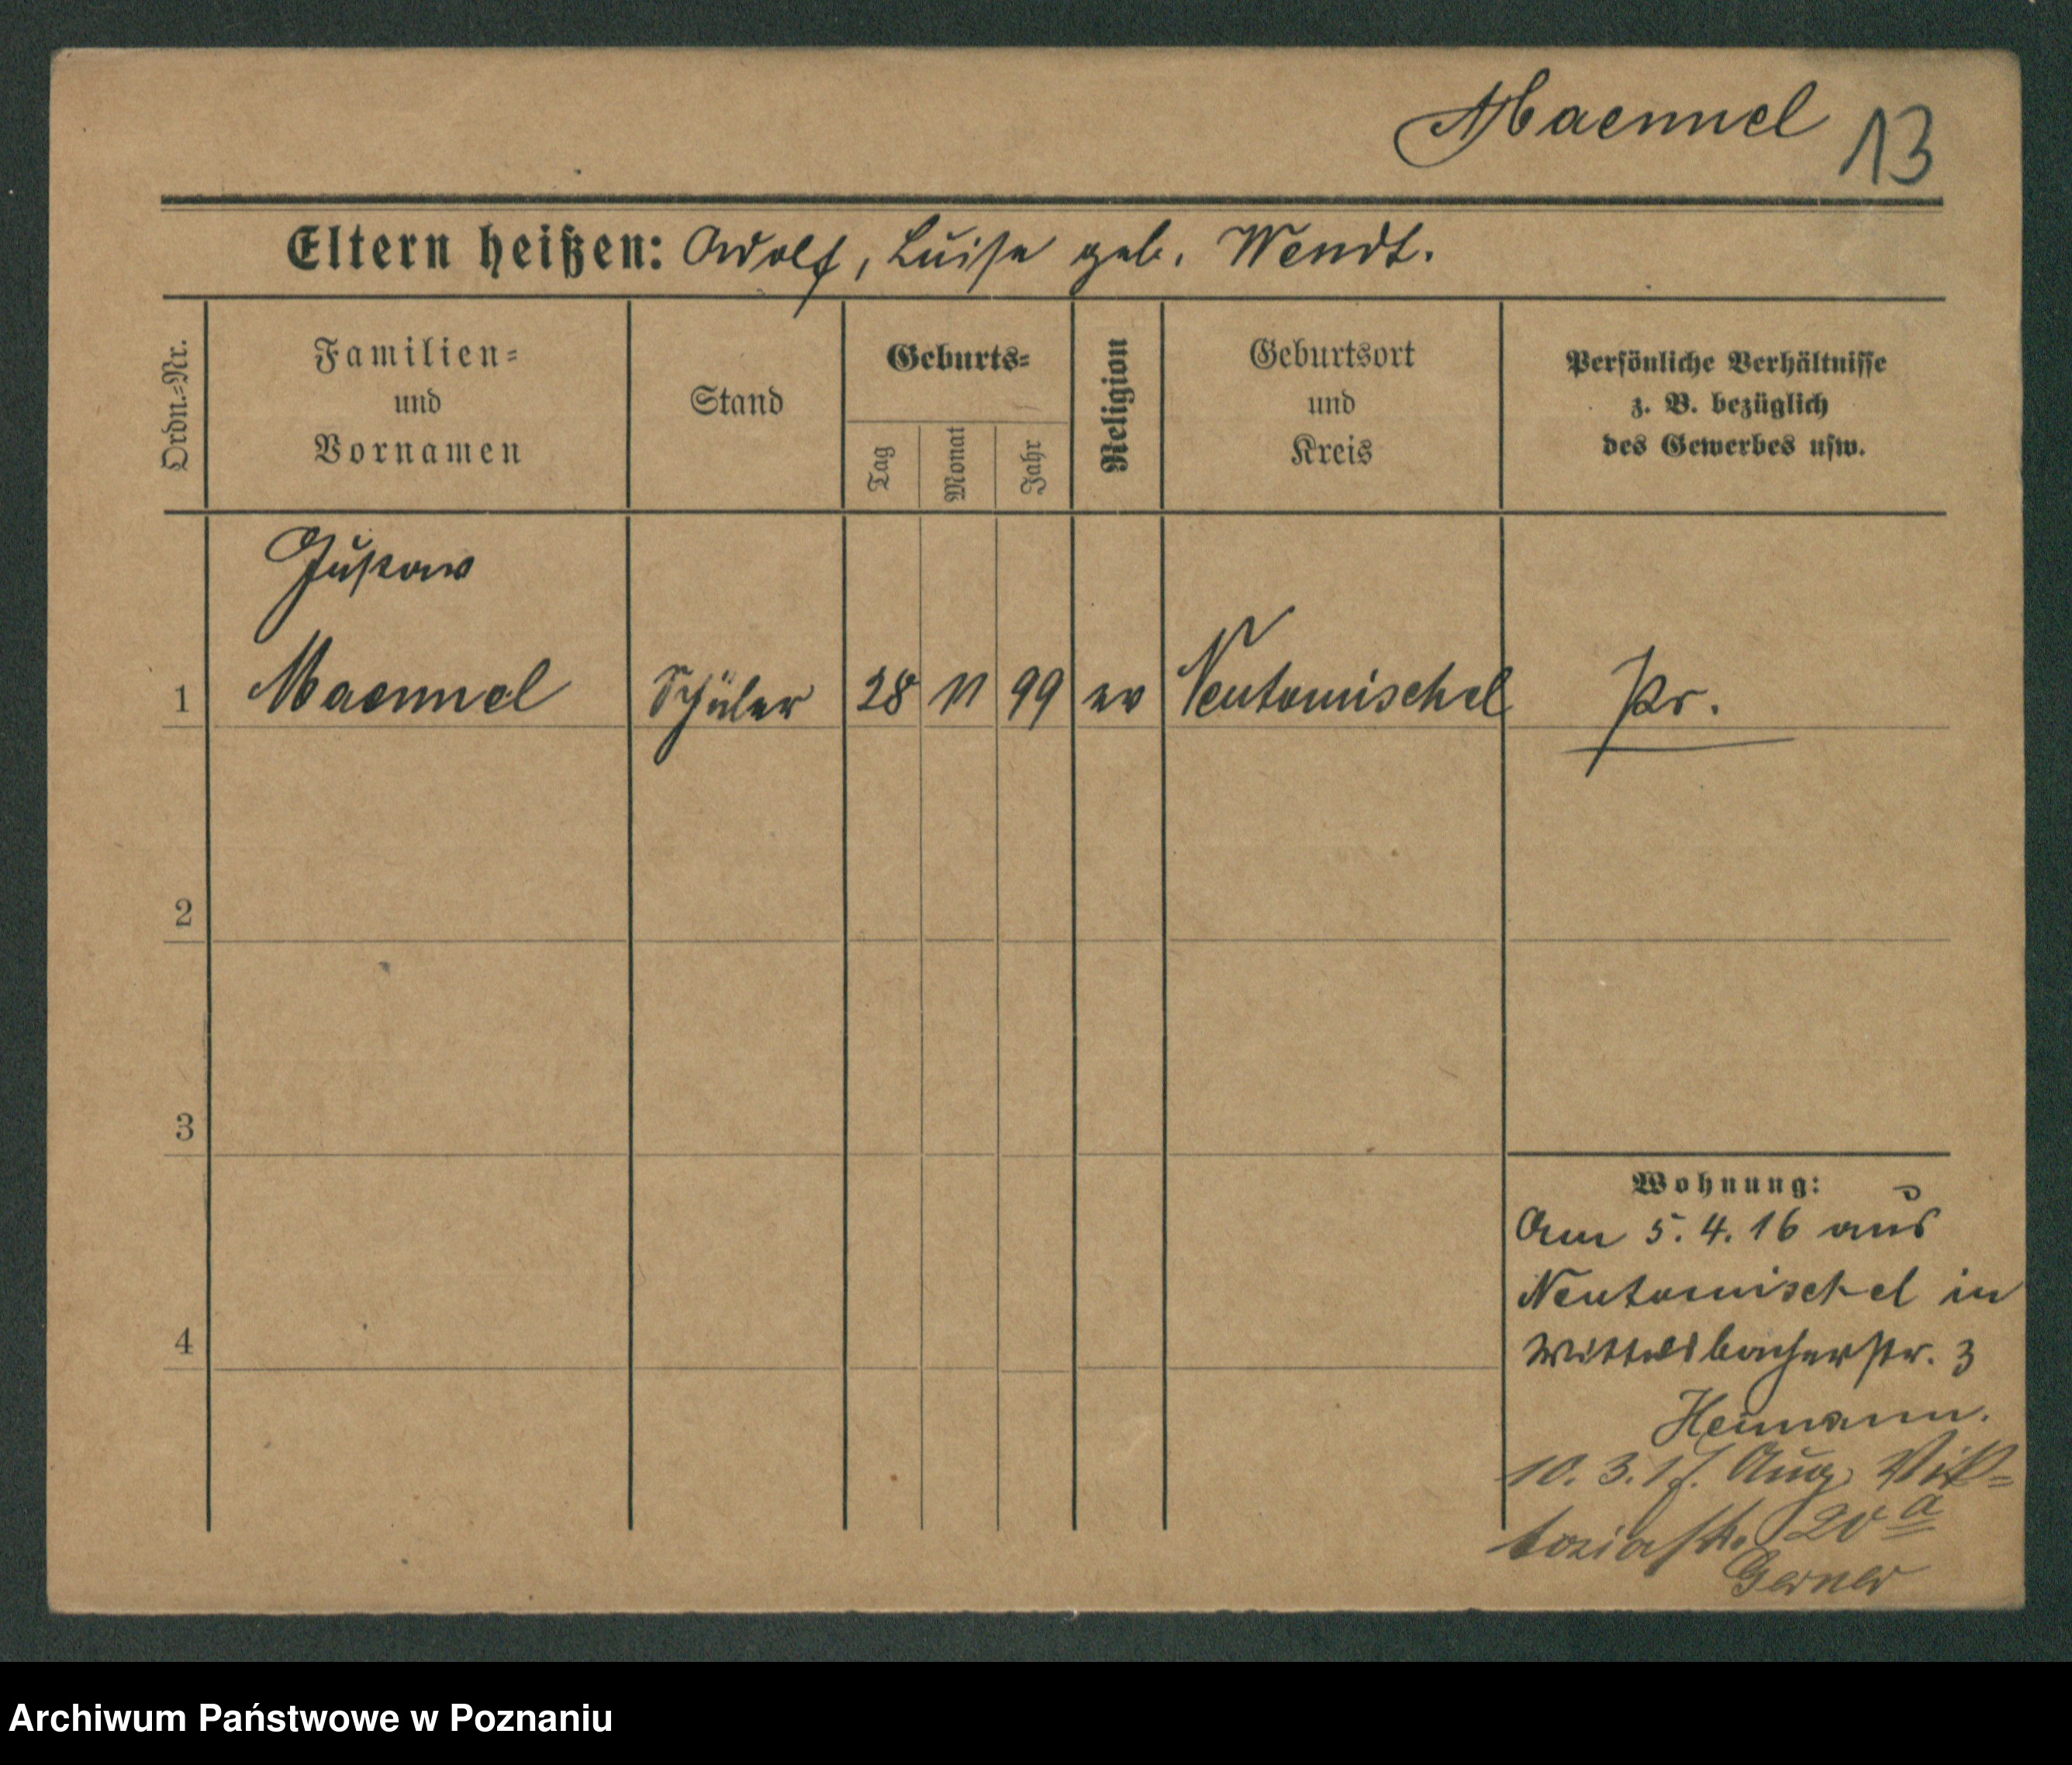 Maennel 13
Eltern heißen: Adolf, Luise geb. Wendt.
Ordn.=Nr.
Familien=
und
Vornamen
Stand
Geburts=
Tag
Monat
Jahr
Religion
Geburtsort
und
Kreis
Persönliche Verhältnisse
z. B. bezüglich
des Gewerbes usw.
Gustav
1 Maennel Schüler 28 11 99 ev Neutomischel Pr.
2
3
4
Wohnung:
Am 5. 4. 16 aus
Neutomischel in
Wittelsbacherstr. 3
Heimann.
10. 3. 17. Aug. Vik=
toriastr. 20 a
Gerner
Archiwum Państwowe w Poznaniu